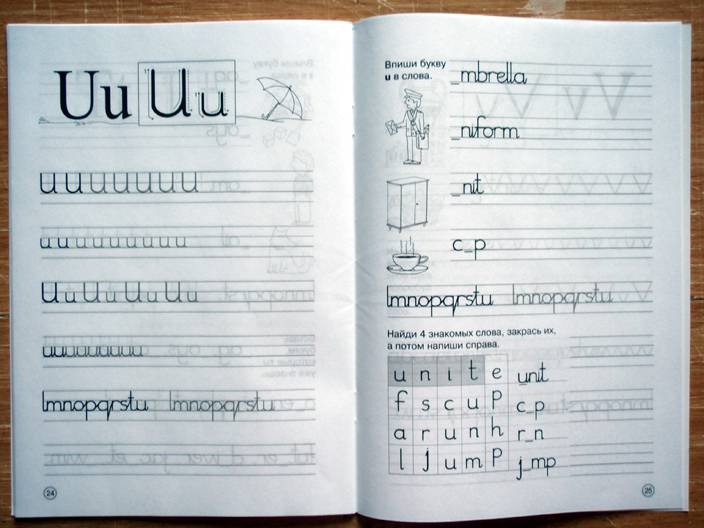 Uu Uu
u u u u u u u u
u u u u u u u u u
U u U u U u U u
uuuuuuuuu
lmnopqrstu lmnopqrstu
24
Впиши букву
u в слова.
_mbrella
_niform
_nit
c_p
lmnopqrstu lmnopqrstu
Найди 4 знакомых слова, закрась их,
а потом напиши справа.
u n i t e unit
f s c u p c_p
a r u n h r_n
l j u m p j_mp
25